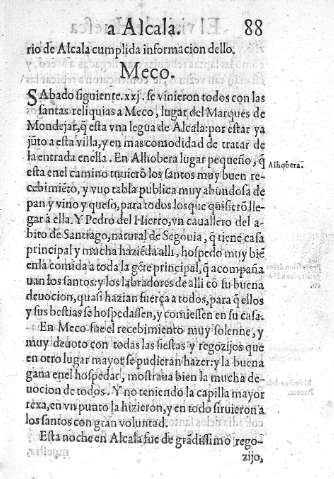 a Alcala. 88
rio de Alcala cumplida informacion dello.
Meco.
SAbado siguiente .xxj. se vinieron todos con las
santas reliquias a Meco, lugar del Marques de
Mondejar, q̃ esta vna legua de Alcala: por estar ya
jũto a esta villa, y en mas comodidad de tratar de
la entrada enella. En Alhobera lugar pequeño, q̃
esta en el camino tuuierõ los santos muy buen re-
cebimiẽto, y vuo tabla publica muy abundosa de
pan y vino y queso, para todos los que quisierõ lle-
gar à ella. Y Pedro del Hierro, vn cauallero del a-
bito de Santiago, natural de Segouia, q̃ tiene casa
principal y mucha haziẽda alli, hospedo muy biẽ
en la comida a toda la gẽte principal, q̃ acompaña
uan los santos: y los labradores de alli cõ su buena
deuocion, quasi hazian fuerça a todos, para q̃ ellos
y sus bestias se hospedassen, y comiessen en su casa.
En Meco fue el recebimiento muy solenne, y
muy deuoto con todas las fiestas y regozijos que
en otro lugar mayor se pudieran hazer: y la buena
gana en el hospedar, mostraua bien la mucha de-
uocion de todos. Y no teniendo la capilla mayor
rexa, en vn punto la hizieron, y en todo siruieron a
los santos con gran voluntad.
Esta noche en Alcala fue de grãdissimo rego-
zijo,
Alhobera.